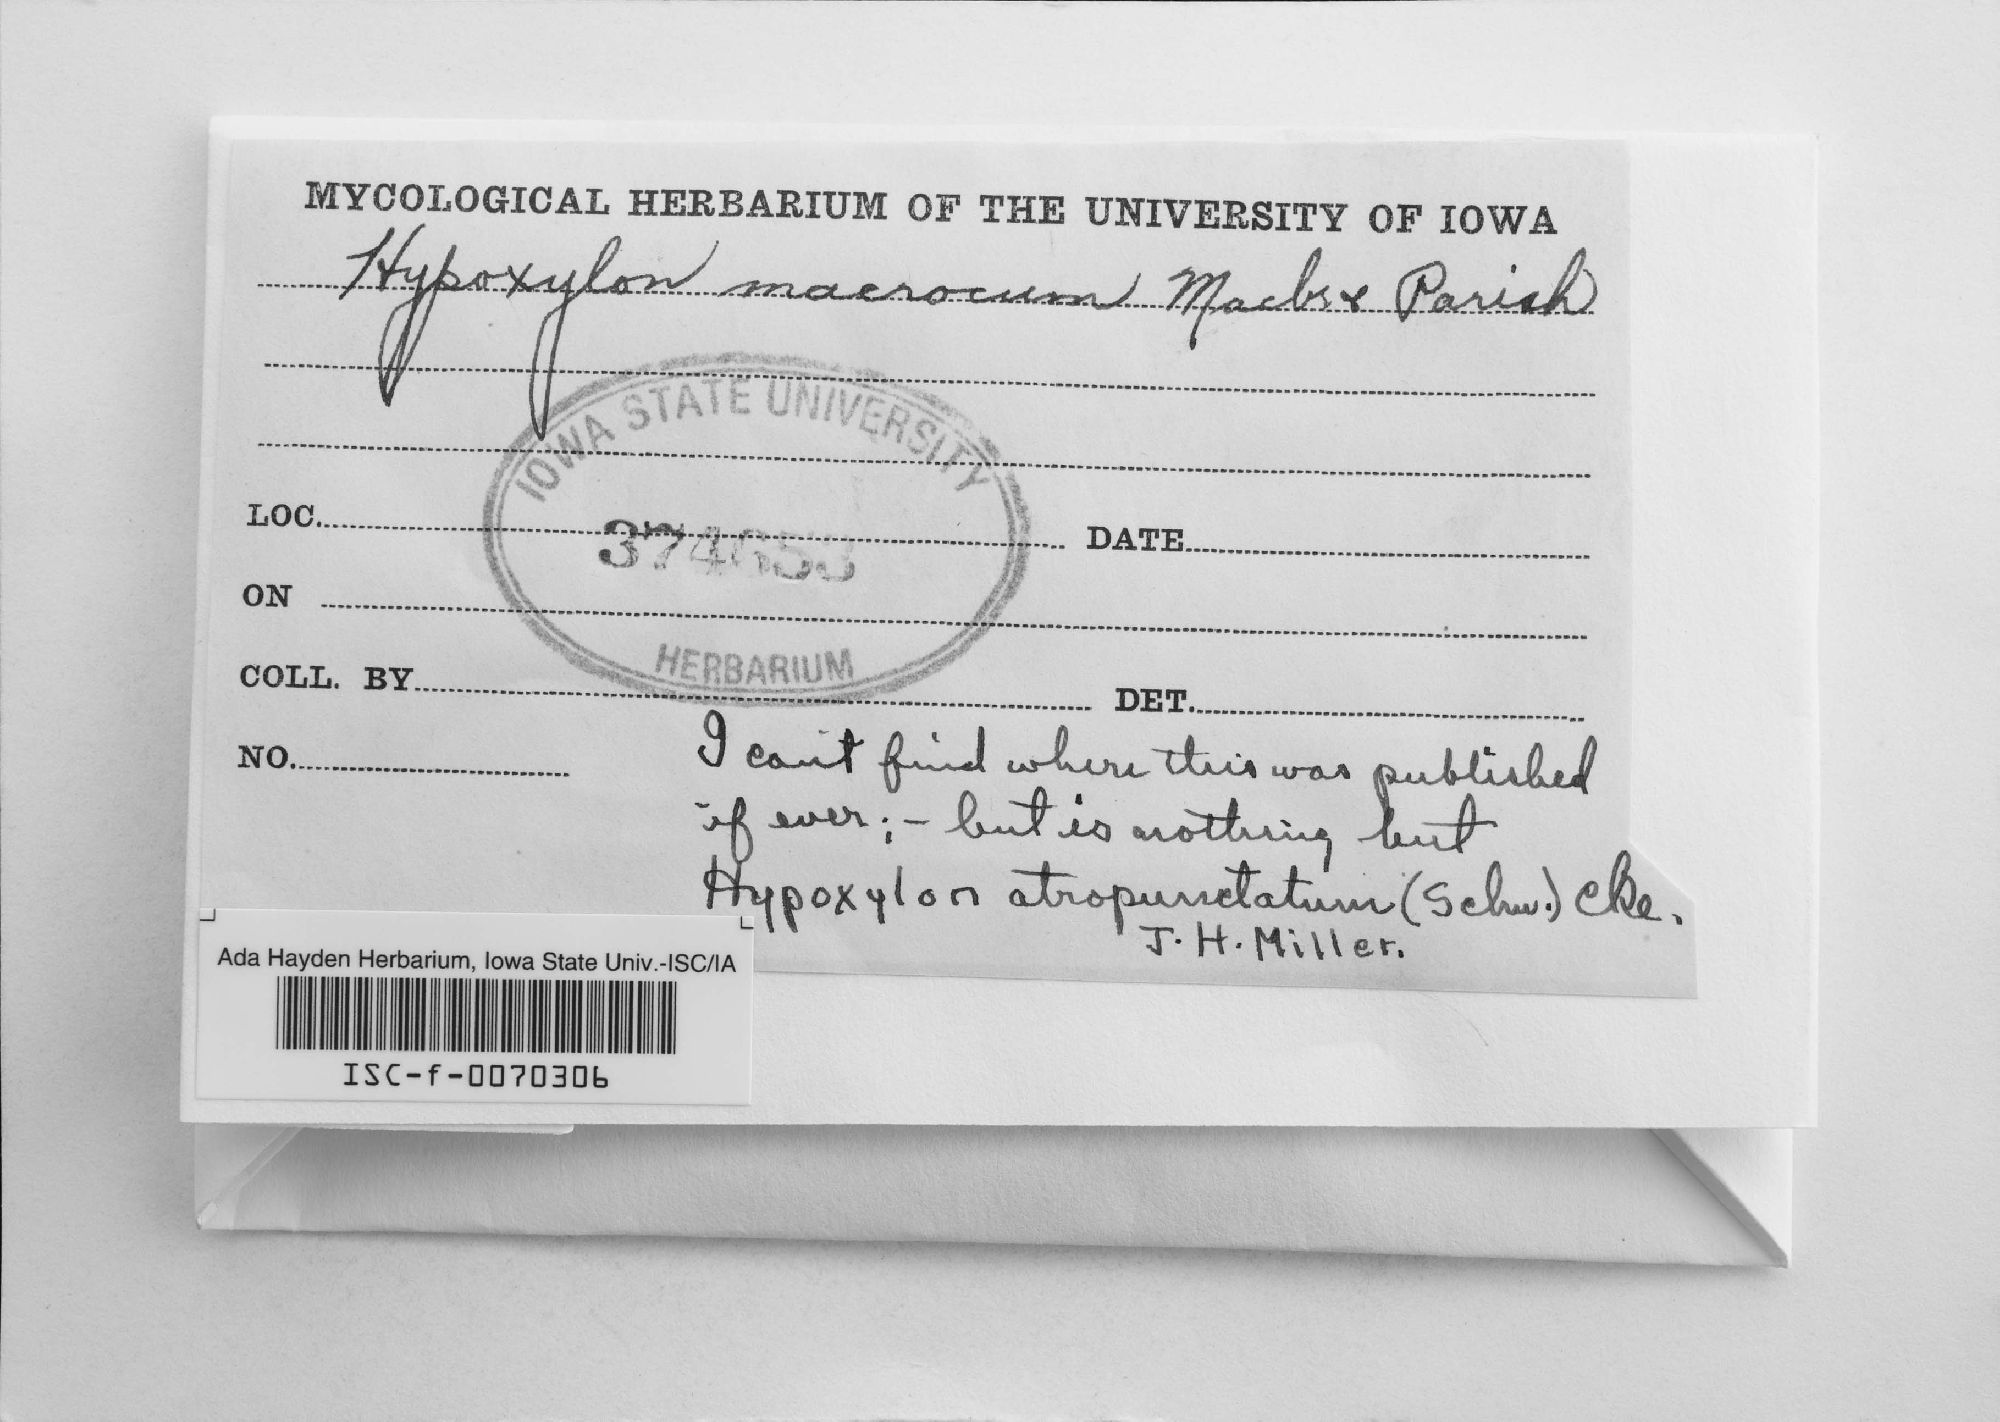 MYCOLOGICAL HERBARIUM OF THE UNIVERSITY OF IOWA
Hypoxylon macrocum Macbr & Parish
IOWA STATE UNIVERSITY
LOC.
DATE
ON
HERBARIUM
COLL. BY
DET.
NO.
I can't find where this was published
if ever; - but is nothing but
Hypoxylon atropunctatum (Schw.) Cke.
J. H. Miller.
Ada Hayden Herbarium, Iowa State Univ.-ISC/IA
ISC-f-0070306